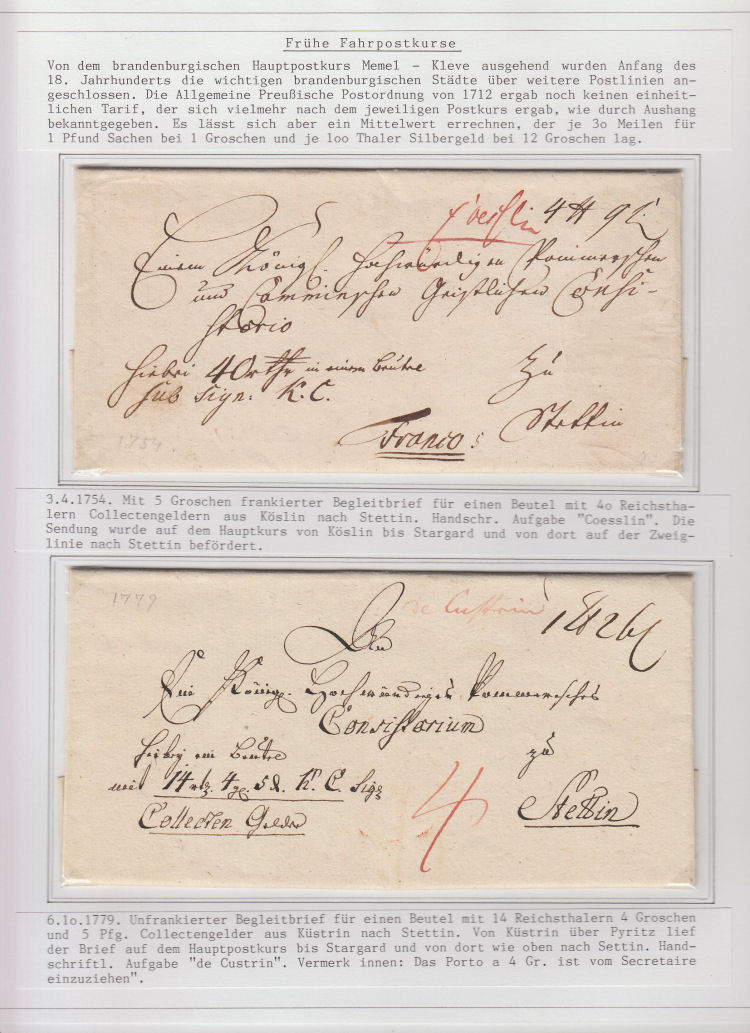 Frühe Fahrpostkurse
Von dem brandenburgischen Hauptpostkurs Memel - Kleve ausgehend wurden Anfang des
18. Jahrhunderts die wichtigen brandenburgischen Städte über weitere Postlinien an-
geschlossen. Die Allgemeine Preußische Postordnung von 1712 ergab noch keinen einheit-
lichen Tarif, der sich vielmehr nach dem jeweiligen Postkurs ergab, wie durch Aushang
bekanntgegeben. Es lässt sich aber ein Mittelwert errechnen, der je 3o Meilen für
1 Pfund Sachen bei 1 Groschen und je 1oo Thaler Silbergeld bei 12 Groschen lag.
Coesslin 4 ℔ 9
Einem Königl. Hochwürdigen Pommerschen
und Camminschen Geistlichen Consi-
storio
hiebei 40 rthr in einem Beutel zu
sub sign: K. C.
Stettin
Franco
1754
3.4.1754. Mit 5 Groschen frankierter Begleitbrief für einen Beutel mit 4o Reichstha-
lern Collectengeldern aus Köslin nach Stettin. Handschr. Aufgabe "Coesslin". Die
Sendung wurde auf dem Hauptkurs von Köslin bis Stargard und von dort auf der Zweig-
linie nach Stettin befördert.
1779
de Custrin
An
Ein Königl. Hochwürdiges Pommersches
Consistorium
hiebey ein Beutel zu
mit 14 rtl. 4 gr. 5 d. K. C. Sig:
Collecten Gelder
4
Stettin
6.1o.1779. Unfrankierter Begleitbrief für einen Beutel mit 14 Reichsthalern 4 Groschen
und 5 Pfg. Collectengelder aus Küstrin nach Stettin. Von Küstrin über Pyritz lief
der Brief auf dem Hauptpostkurs bis Stargard und von dort wie oben nach Settin. Hand-
schriftl. Aufgabe "de Custrin". Vermerk innen: Das Porto a 4 Gr. ist vom Secretaire
einzuziehen".